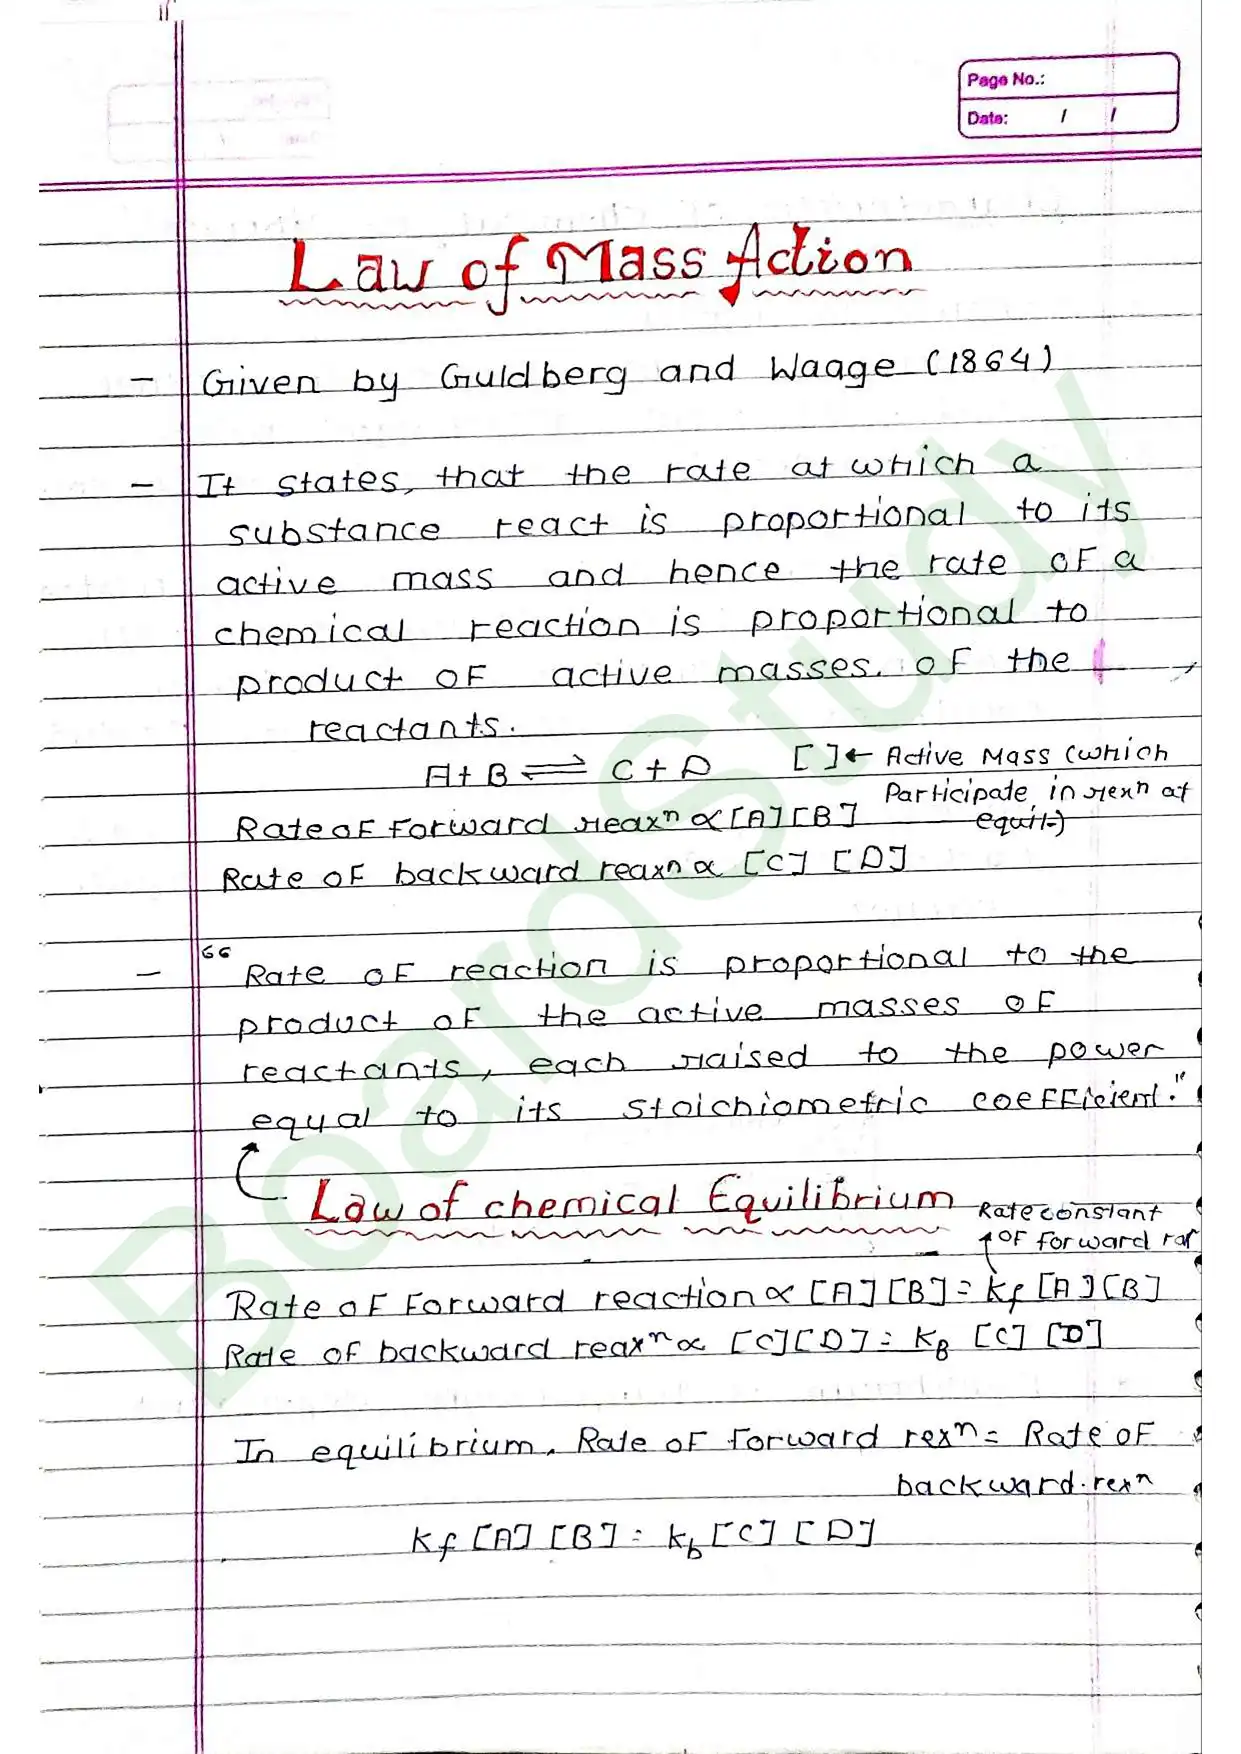 Page No.:
Date: / /
Law of Mass Action
- Given by Guldberg and Waage (1864)
- It states, that the rate at which a
substance react is proportional to its
active mass and hence the rate of a
chemical reaction is proportional to
product of active masses. of the
reactants.
A + B ⇌ C + D [ ] ← Active Mass (which
Participate in rexⁿ at
equil:)
Rate of forward reaxⁿ ∝ [A] [B]
Rate of backward reaxⁿ ∝ [C] [D]
- “ Rate of reaction is proportional to the
product of the active masses of
reactants, each raised to the power
equal to its stoichiometric coefficient."
Law of chemical Equilibrium
Rate constant
of forward rar
Rate of Forward reaction ∝ [A] [B] = Kf [A] [B]
Rate of backward reaxⁿ ∝ [C] [D] = KB [C] [D]
In equilibrium, Rate of forward rexⁿ = Rate of
backward rexⁿ
Kf [A] [B] = Kb [C] [D]
BoardStudy